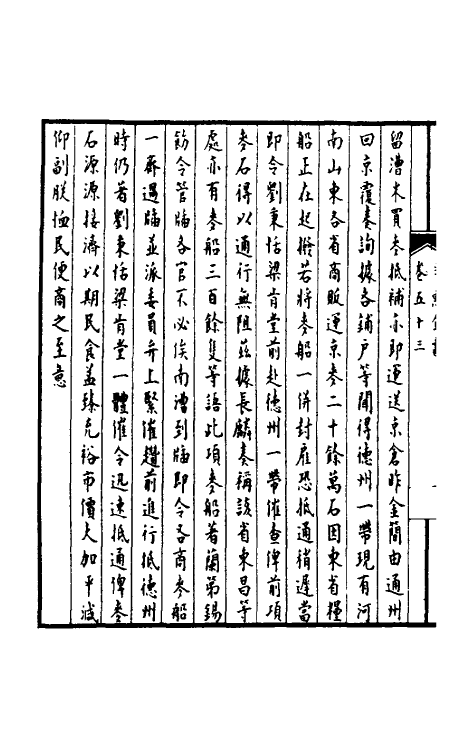 卷五十三
留漕米買麥抵補亦即運送京倉昨金簡由通州
回京覆奏詢據各鋪户等聞得德州一帶現有河
南山東各省商販運京麥二十餘萬石因東省糧
船正在起撥若將麥船一併封雇恐抵通稍遲當
即令劉秉恬梁肯堂前赴德州一帶催查俾前項
麥石得以通行無阻茲據長麟奏稱該省東昌等
處亦有麥船三百餘隻等語此項麥船著蘭第錫
飭令管牐各官不必俟南漕到牐即令各商麥船
一廏遇牐並派委員弁上緊催趲前進行抵德州
時仍著劉秉恬梁肯堂一體催令迅速抵通俾麥
石源源接濟以期民食益臻充裕市價大加平減
仰副朕恤民便商之至意